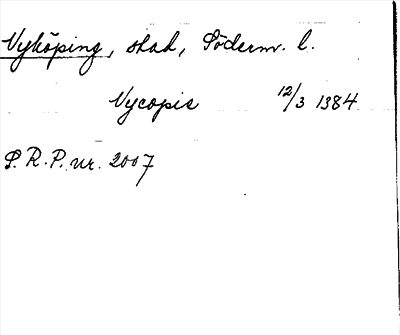 Nyköping, stad, Söderm. l.
Nycopie 12/3 1384
S.R.P. nr. 2007